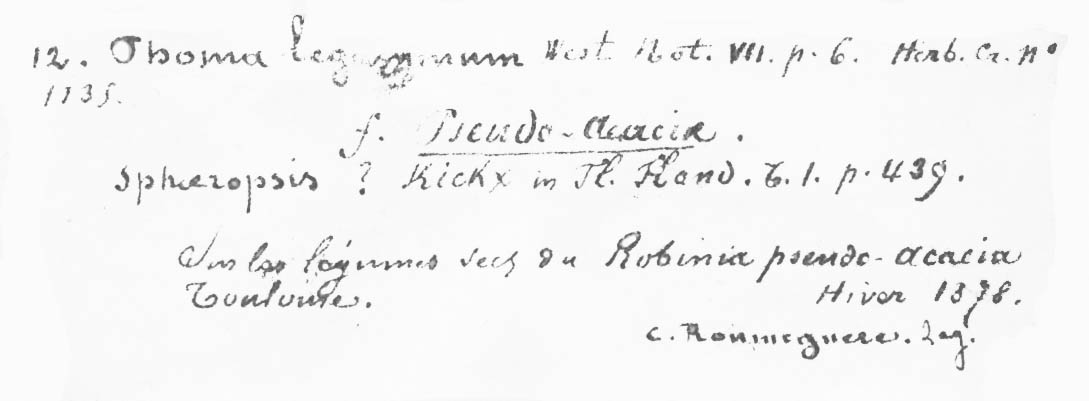 12. Phoma leguminum West. Not. VII. p. 6. Herb. Cr. n°
1135.
f. Pseudo-Acacia.
Sphæropsis ? Kickx in Fl. Fland. T. 1. p. 439.
Sur les légumes secs du Robinia pseudo-Acacia
Toulouse. Hiver 1878.
C. Roumeguere. Leg.